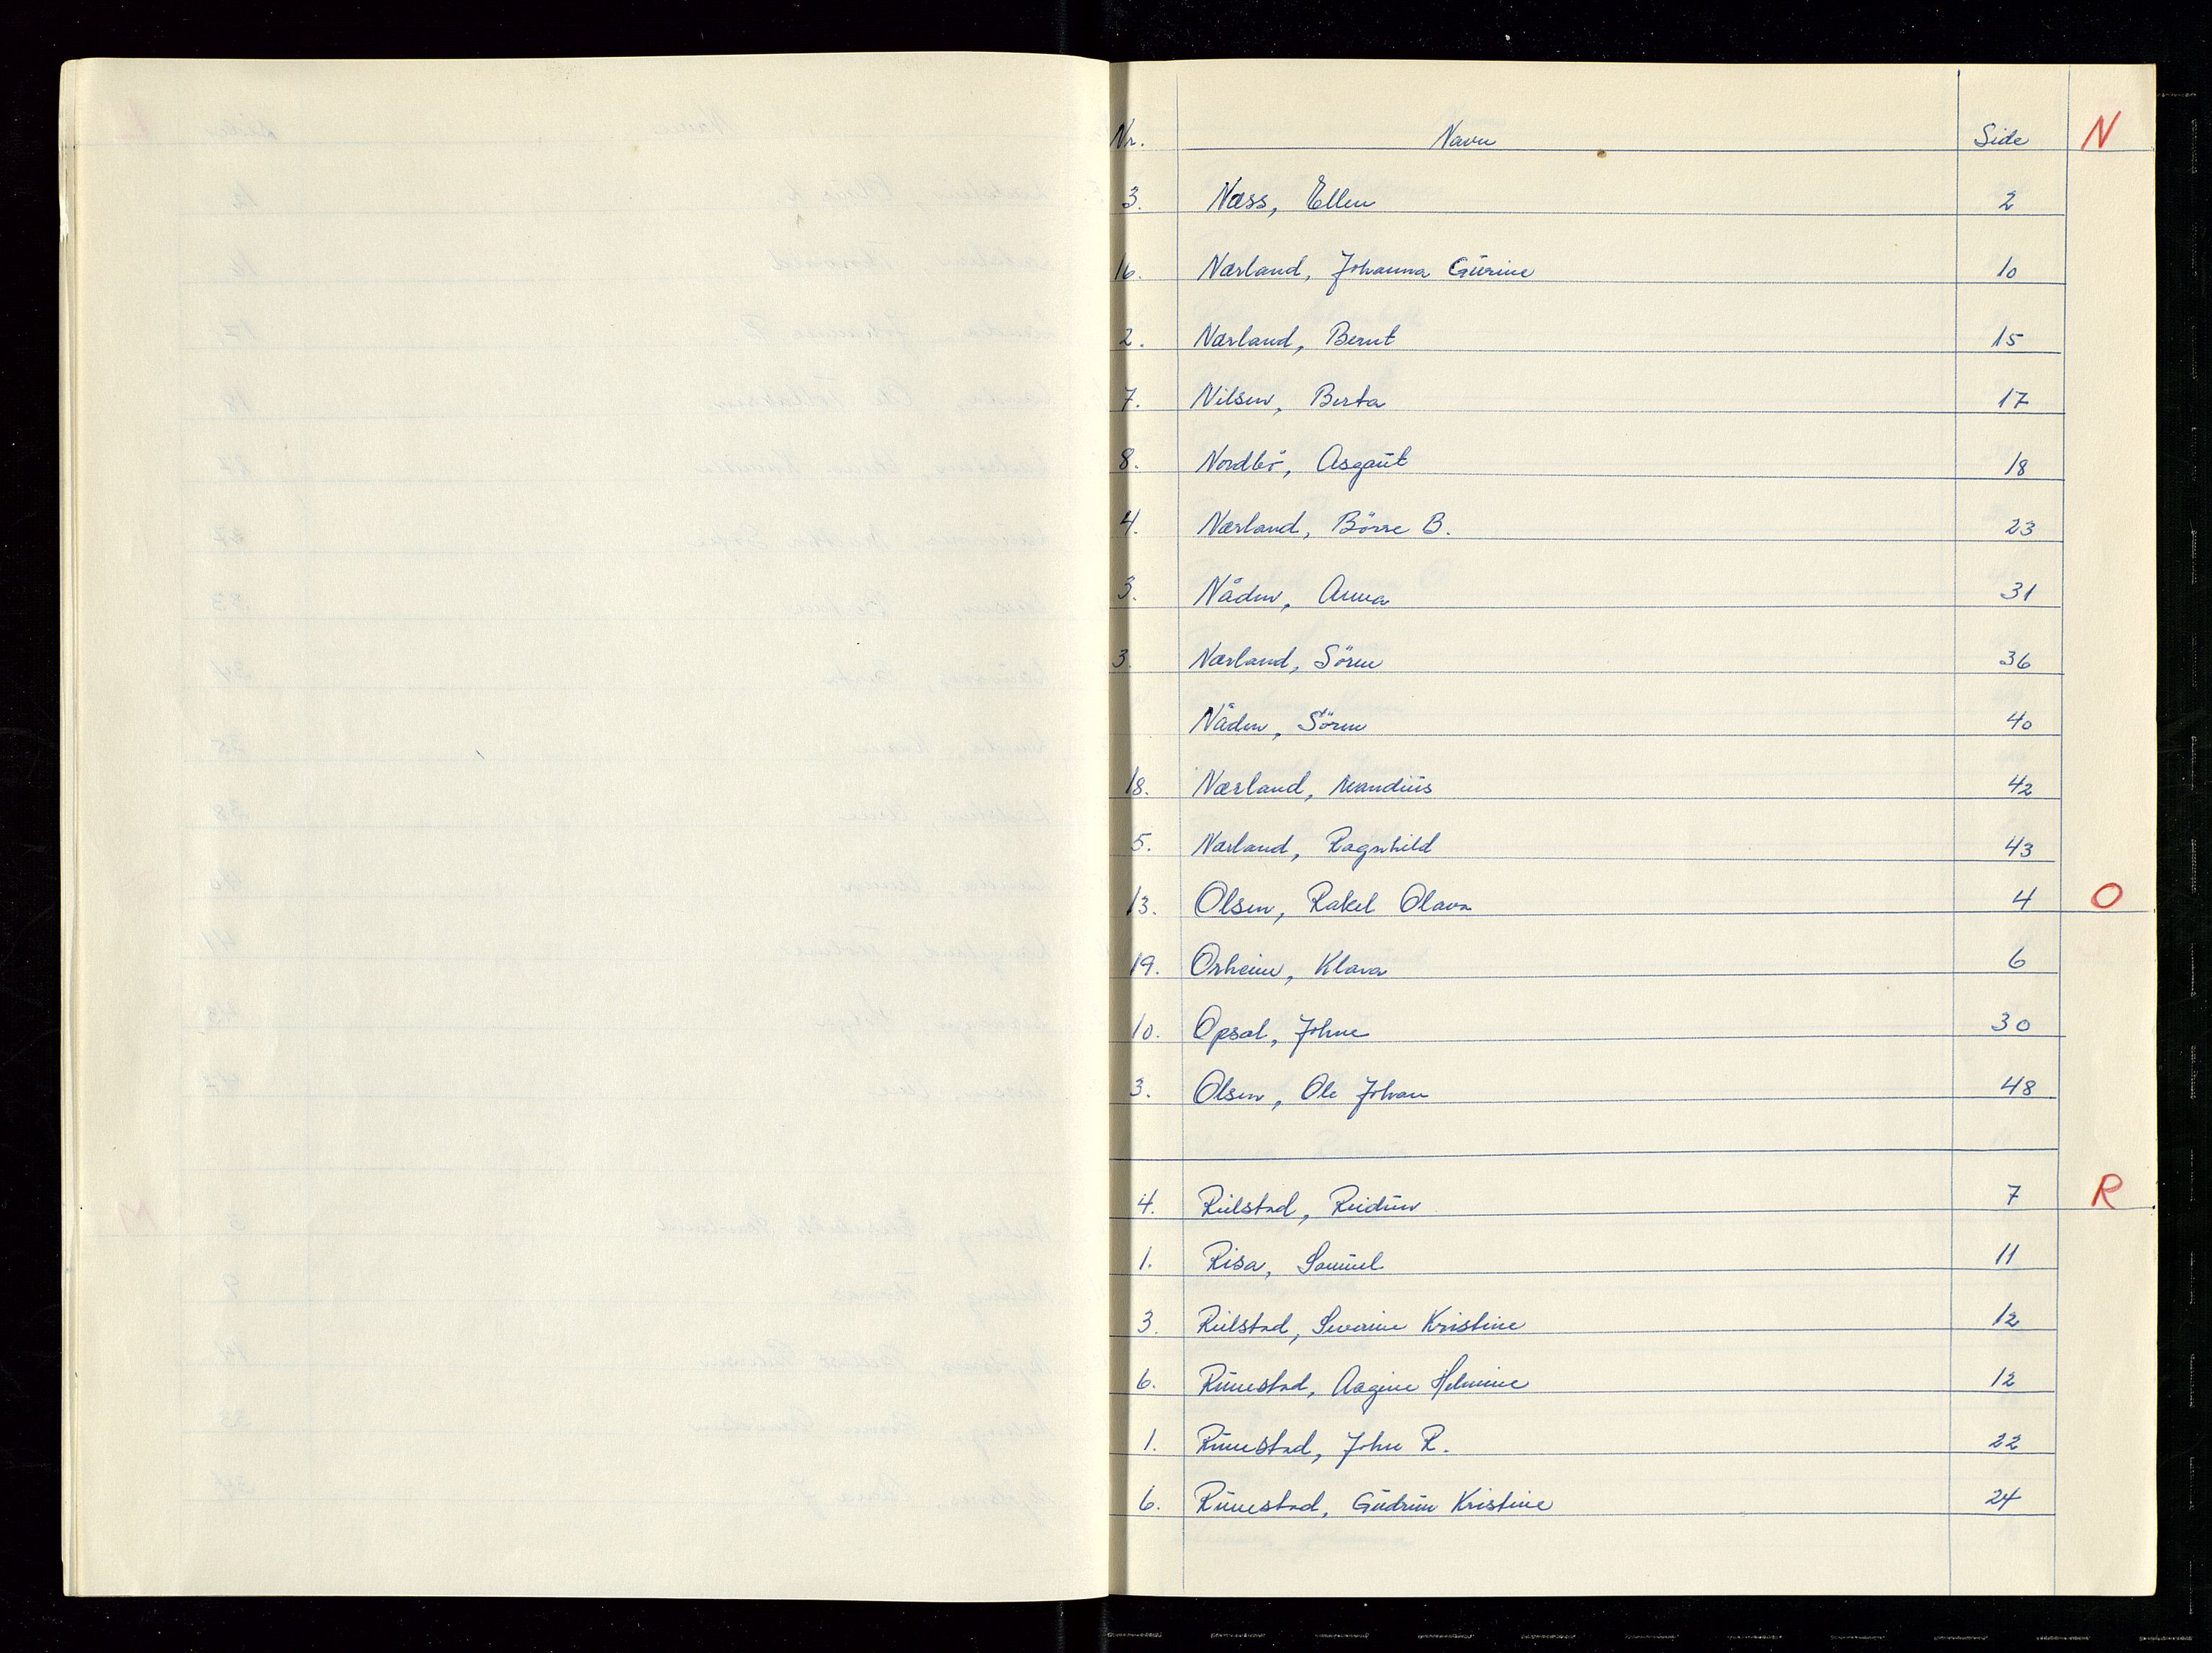 Nr. Navn Side N
3. Næss, Ellen 2
16. Nærland, Johanna Gurine 10
2. Nærland, Bernt 15
7. Nilsen, Berta 17
8. Nordbö, Asgaut 18
4. Nærland, Börre B. 23
3. Nåden, Anna 31
3. Nærland, Sören 36
Nåden, Sören 40
18. Nærland, Mandius 42
5. Nærland, Ragnhild 43
13. Olsen, Rakel Olava 4 O
19. Orheim, Klara 6
10. Opsal, Johne 30
3. Olsen, Ole Johan 48
4. Reilstad, Reidun 7 R
1. Risa, Samuel 11
3. Reilstad, Severine Kristine 12
6. Runestad, Aagine Helmine 12
1. Runestad, John R. 22
6. Runestad, Gudrun Kristine 24